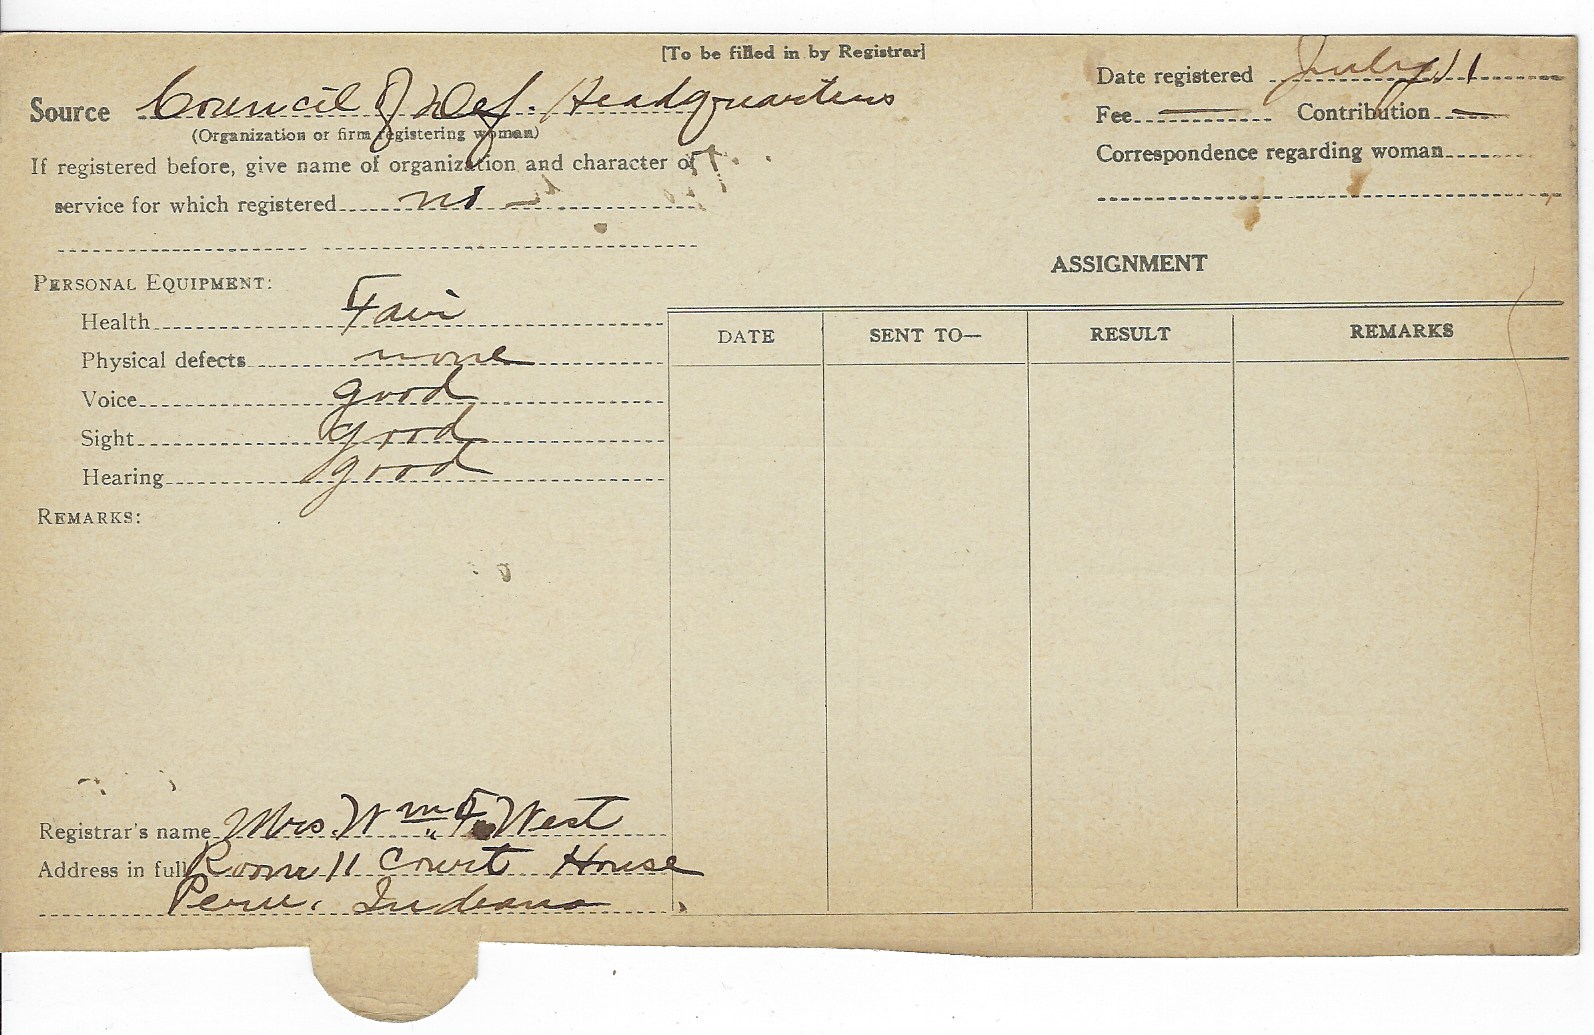 [To be filled in by Registrar]
Source Council of Def. Headquarters
(Organization or firm registering woman)
If registered before, give name of organization and character of
service for which registered no
Date registered July 11
Fee — Contribution —
Correspondence regarding woman
PERSONAL EQUIPMENT:
Health Fair
Physical defects none
Voice good
Sight good
Hearing good
REMARKS:
ASSIGNMENT
DATE SENT TO— RESULT REMARKS
Registrar's name Mrs. Wm F. West
Address in full Room 11 Court House
Peru, Indiana